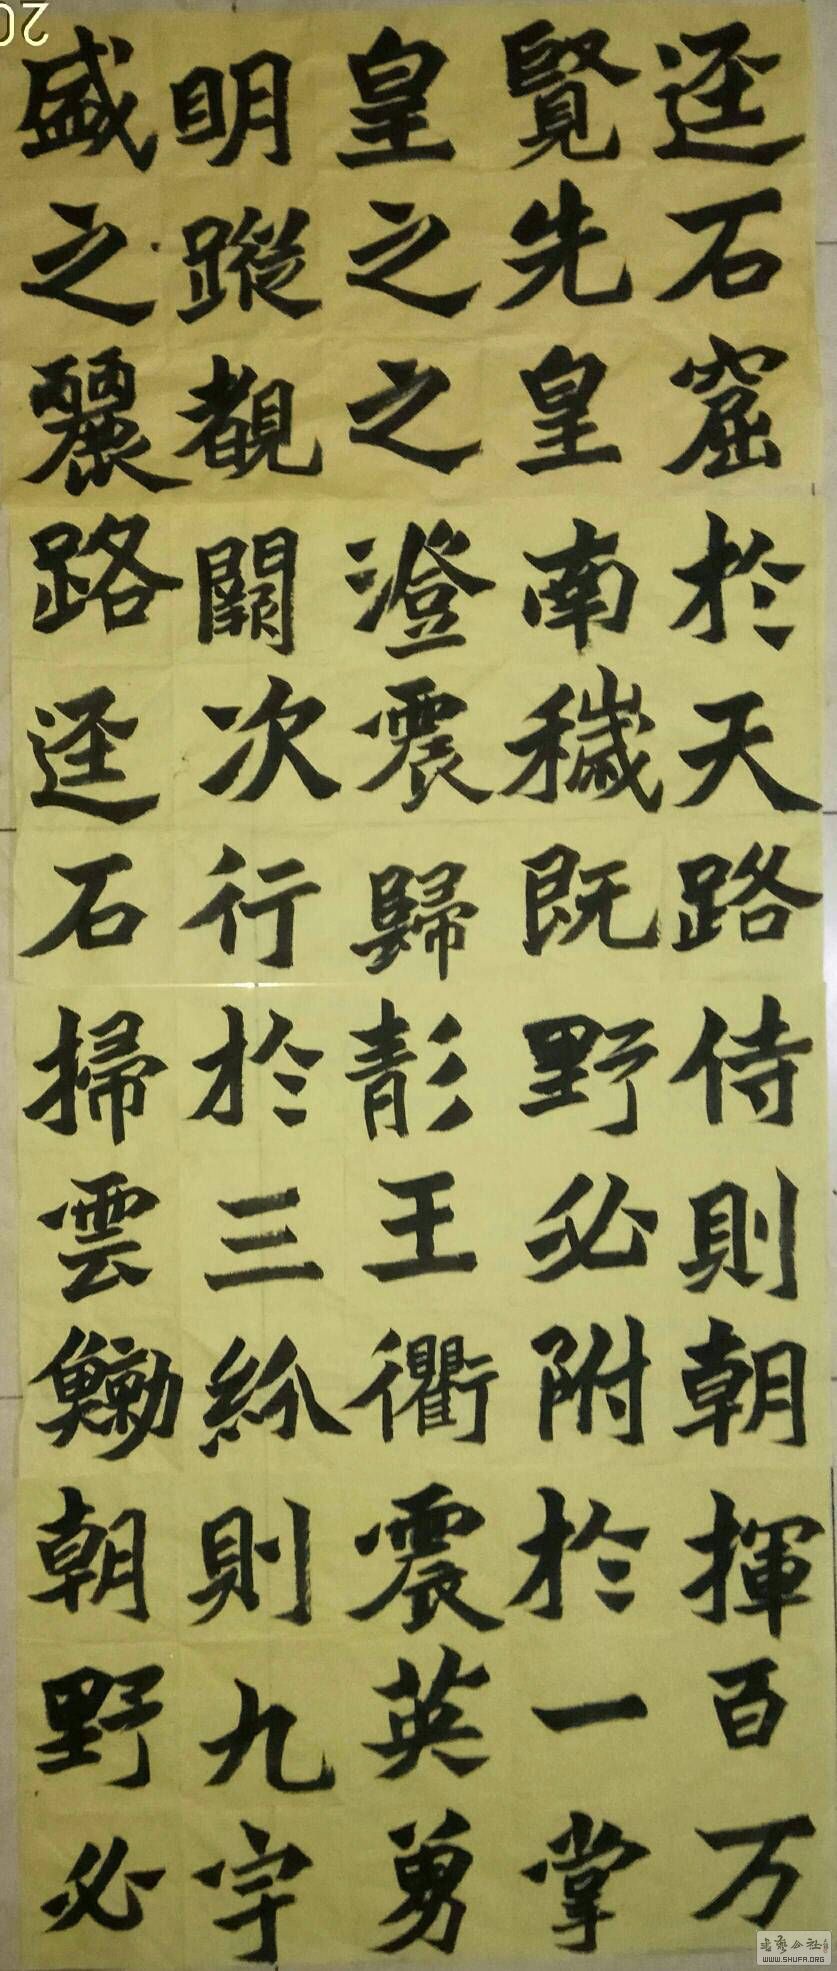 迳石窟於天路侍則朝揮百万
覽先皇南穢既野必附於一掌
皇之之澄震歸靜王衢震英勇
明蹤覩闕次行於三紛則九宇
盛之麗路迳石掃雲鯨朝野必
20
书艺公社
WWW.SHUFA.ORG